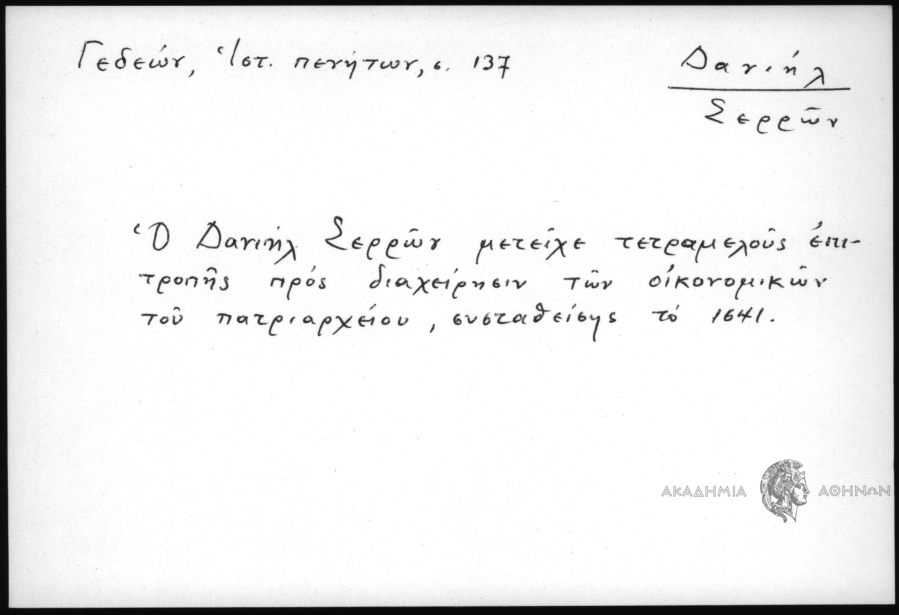 Γεδεών, Ἱστ. πενήτων, σ. 137
Δανιήλ
Σερρῶν
Ὁ Δανιὴλ Σερρῶν μετεῖχε τετραμελοῦς ἐπι-
τροπῆς πρός διαχείρησιν τῶν οἰκονομικῶν
τοῦ πατριαρχείου, συσταθείσης τό 1641.
ΑΚΑΔΗΜΙΑ ΑΘΗΝΩΝ